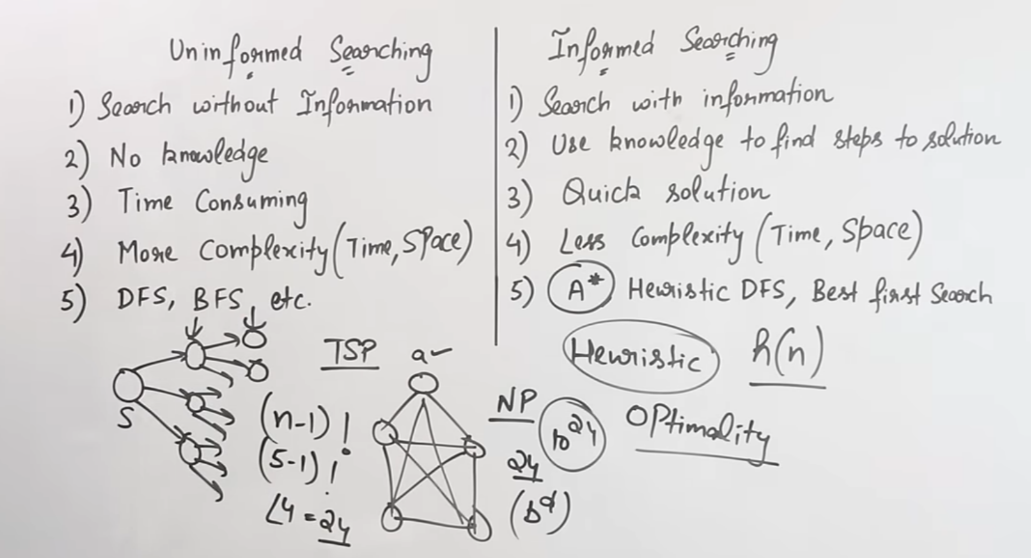 Uninformed Searching
1) Search without Information
2) No knowledge
3) Time Consuming
4) More Complexity (Time, Space)
5) DFS, BFS, etc.
Informed Searching
1) Search with information
2) Use knowledge to find steps to solution
3) Quick solution
4) Less Complexity (Time, Space)
5) A* Heuristic DFS, Best first Search
Heuristic h(n)
Optimality
S
TSP
a
(n-1)!
(5-1)!
∠4 = 24
NP
10²⁴
24
(bᵈ)